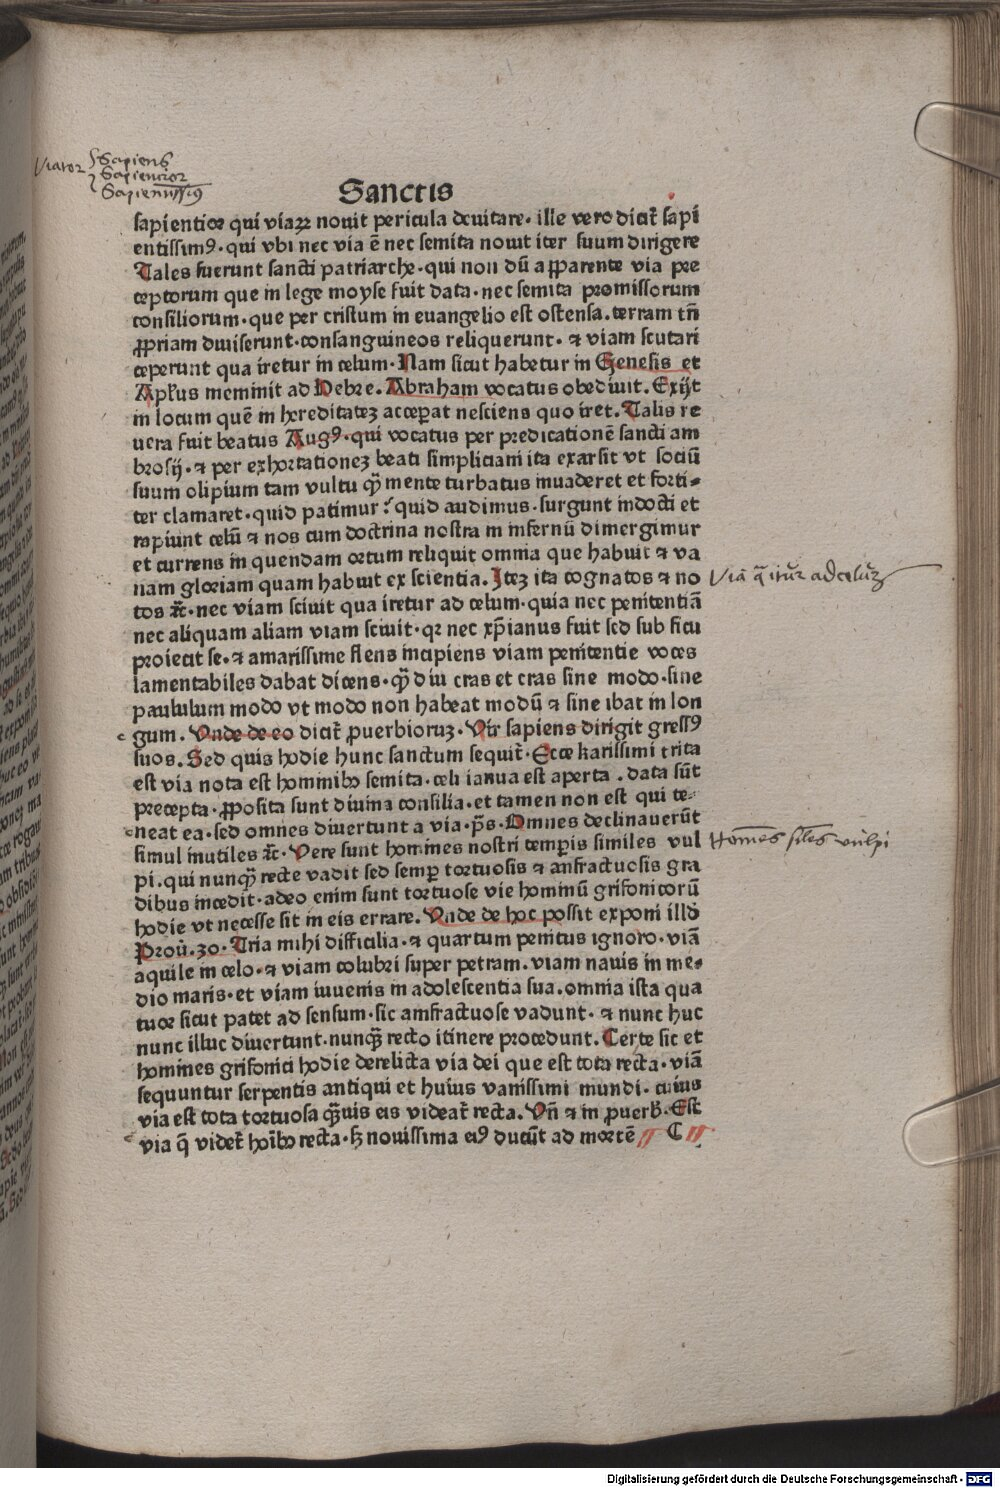 Viator
Sapiens
Sapientior
Sapientissimꝰ
Sanctis
sapientior qui viaꝝ nouit pericula deuitare· ille vero dicit᷑ sapi
entissimꝰ·qui vbi nec via ē nec semita nouit iter suum dirigere
Tales fuerunt sancti patriarche·qui non dū apparente via pre
ceptorum que in lege moyse fuit data·nec semita promissorum
consiliorum·que per cristum in euangelio est ostensa.terram tn̄
ꝓpriam diuiserunt·consanguineos reliquerunt· ⁊ viam scutari
ceperunt qua iretur in celum·Nam sicut habetur in Genesis et
Aplꝰus meminit ad Hebre. Abraham vocatus obediuit. Exijt
in locum quē in hereditatez acceꝑat nesciens quo iret.Talis re
uera fuit beatus Augꝰ·qui vocatus per predicationē sancti am
brosij·⁊ per exhortationez beati simpliciani ita exarsit vt sociū
suum olipium tam vultu qꝫ mente turbatus inuaderet et forti⸗
ter clamaret·quid patimur? quid audimus·surgunt indocti et
rapiunt celū ⁊ nos cum doctrina nostra in infernū dimergimur
et currens in quendam ortum reliquit omnia que habuit ⁊ va
nam gloriam quam habuit ex scientia. Itez ita cognatos ⁊ no
Viā q̄ itur ad celūꝫ
tos ⁊c̄·nec viam sciuit qua iretur ad celum·quia nec penitentiā
nec aliquam aliam viam sciuit·qꝛ nec xp̄ianus fuit sed sub ficu
proiecit se·⁊ amarissime flens incipiens viam penitentie voces
lamentabiles dabat dicens·qꝫ diu cras et cras sine modo·sine
paululum modo vt modo non habeat modū ⁊ sine ibat in lon
gum. Vnde de eo dicit᷑ ꝓuerbioruz·Vir sapiens dirigit gressꝰ
suos.Sed quis hodie hunc sanctum sequit᷑·Ecce karissimi trita
est via nota est hominibꝰ semita·celi ianua est aperta . data sūt
precepta·ꝓposita sunt diuina consilia·et tamen non est qui te⸗
neat ea·sed omnes diuertunt a via·ps̄·Omnes declinauerūt
simul inutiles ⁊c̄·Vere sunt homines nostri temꝑis similes vul
Homēs siles vulpi
pi·qui nunqꝫ recte vadit sed semꝑ tortuosis ⁊ anfractuosis gra
dibus incedit·adeo enim sunt tortuose vie hominū grifonicorū
hodie vt necesse sit in eis errare. Vnde de hoc possit exponi illd̄
Prou̅.30·Tria mihi difficilia·⁊ quartum penitus ignoro·viā
aquile in celo·⁊ viam colubri super petram.viam nauis in me⸗
dio maris·et viam iuuenis in adolescentia sua.omnia ista qua
tuor sicut patet ad sensum·sic amfractuose vadunt· ⁊ nunc huc
nunc illuc diuertunt·nunqꝫ recto itinere procedunt.Certe sic et
homines grifonici hodie derelicta via dei que est tota recta·viā
sequuntur serpentis antiqui et huius vanissimi mundi. cuius
via est tota tortuosa qꝫuis eis videat᷑ recta. Vn̄ ⁊ in ꝓuerb̄·Est
via q̄ videt᷑ hoībꝰ recta·sꝫ nouissima eiꝰ ducūt ad mortē C
Digitalisierung gefördert durch die Deutsche Forschungsgemeinschaft - DFG